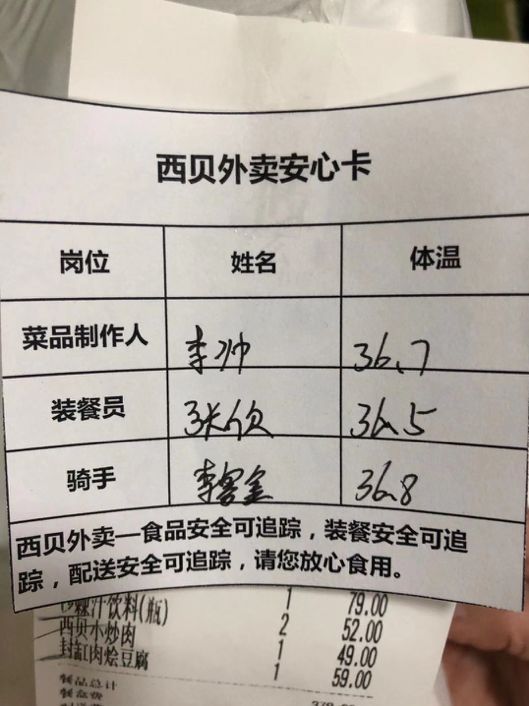 西贝外卖安心卡
岗位 姓名 体温
菜品制作人 李帅 36.7
装餐员 36.5
骑手 李客金 36.8
西贝外卖—食品安全可追踪，装餐安全可追
踪，配送安全可追踪，请您放心食用。
汁饮料(瓶) 1 79.00
西贝小炒肉 2 52.00
封缸肉烩豆腐 1 49.00
1 59.00
餐品总计
餐盒费